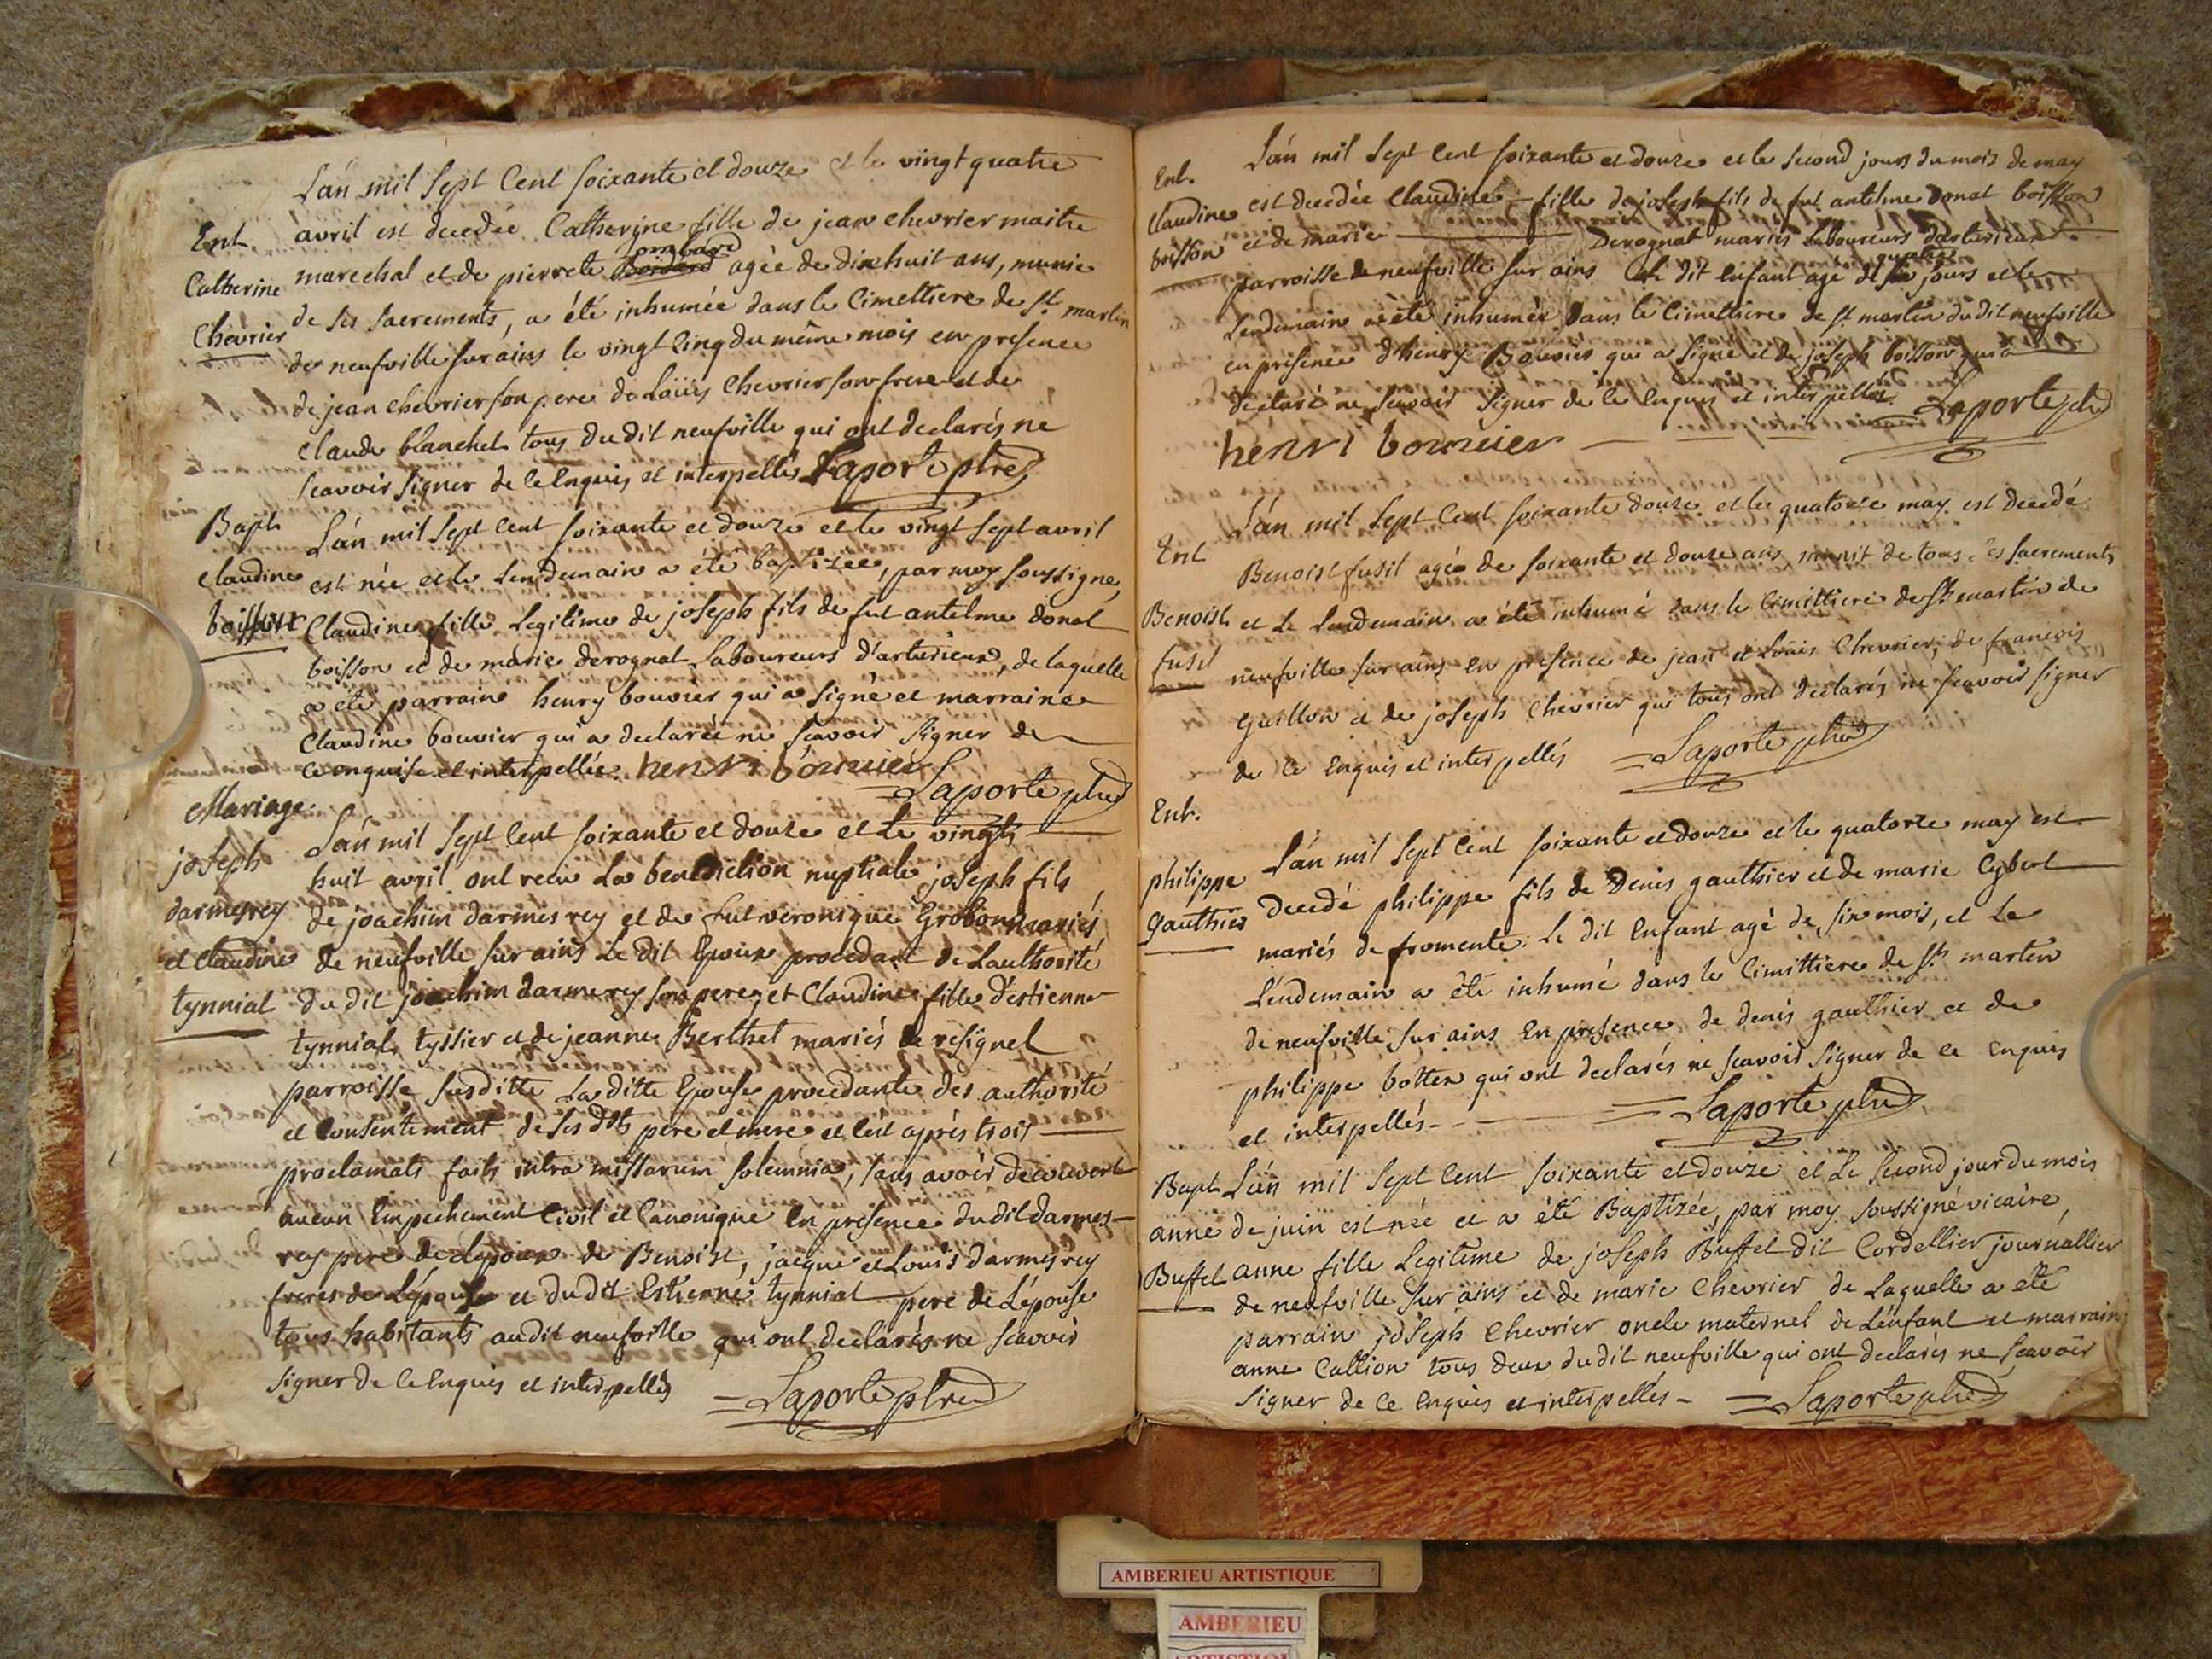 L'an mil sept cent soixante et douze et le vingt quatre
Ent. avril est decedée Catherine fille de jean chevrier maitre
Catherine marechal et de pierrete ombard agée de dix huit ans, munie
Chevrier de ses sacrements, a été inhumée dans le Cimettiere de st. martin
de neufville sur ains le vingt cinq du même mois en presence
de jean chevrier son pere de Loüis Chevrier son frere et de
claude blanchet tous dudit neufville qui ont declarés ne
scavoir signer de ce Enquis et interpellés Laporte ptre
Bapt L'an mil sept cent soixante et douze et le vingt sept avril
claudine est née et le lendemain a été baptizée, par moy soussigne,
boisson Claudine fille Legitime de joseph fils de fut antelme donat
boisson et de marie derognat Laboureurs d'arturieux, de laquelle
a été parrain henry bouvier qui a signé et marraine
Claudine bouvier qui a declarée ne scavoir signer de
ce enquise et interpellée. henri bouuier
Laporte ptre
Mariage
joseph L'an mil sept cent soixante et douze et le vingts
huit avril ont recu la benediction nuptiale joseph fils
darmesrey de joachim darmesrey et de fut veronique Grobon mariés
et claudine de neufville sur ains Le dit Epoux procedant de Lauthorité
tynnial du dit joachim darmerey son pere, et Claudine fille d'estienne
tynnial, tyssier et de jeanne Berthet mariés de resignel
parroisse susditte La ditte Epouse procedante des authorité
et Consentement de ses dts pere et mere et c'est après trois
proclamats faits intra missarum solemnia, sans avoir decouvert
aucun Empechement Civil et Canonique En presence dudit darmes-
rey pere de lepoux de Benoist, jacque et Louis darmesrey
freres de Lépouse et dudit Estienne tynnial pere de Lépouse
tous habitants audit neufville qui ont declarés ne scavoir
signer de ce Enquis et interpellés Laporte ptre
Ent. L'an mil sept cent soixante et douze et le second jours du mois de may
Claudine est decedée Claudine fille de joseph fils de fut antelme donat boisson
boisson et de marie Derognat mariés Laboureurs darturieux
quatre
parroisse de neufville sur ains Le dit Enfant agé de six jours et le
Lendemain a été inhumée dans le Cimettiere de st. martin du dit neufville
en presence d'henry Bouvier qui a signé et de joseph boisson qui a
declaré ne scavoir signer de ce Enquis et interpellés. Laporte ptre
henri bouuier
L'an mil sept cent soixante douze et le quatorze may est decedé
Ent Benoist fusil agée de soixante et douze ans munit de tous ses sacrements
Benoist et Le Lendemain a été inhumé dans le Cimittiere de St martin de
fusil neufville sur ains En presence de jean et Loüis Chevrier, de francois
Guillon et de joseph Chevrier qui tous ont declarés ne scavoir signer
de ce Enquis et interpellés Laporte ptre
Ent.
L'an mil sept cent soixante et douze et le quatorze may est
philippe decedé philippe fils de Denis gauthier et de marie Cybert
Gauthier mariés de fromente. Le dit Enfant agé de, six mois, et Le
Léndemain a été inhumé dans le Cimittiere de st. martin
de neufville sur ains En presence de denis gauthier et de
philippe botter qui ont declarés ne scavoir signer de ce Enquis
et interpellés - Laporte ptre
Bapt L'an mil sept cent soixante et douze et Le second jour du mois
anne de juin est née et a été Baptizée, par moy soussigné vicaire,
Buffet anne fille Legitime de joseph Buffet dit Cordellier journallier
de neufville sur ains et de marie Chevrier de Laquelle a été
parrain joseph Chevrier oncle maternel de L'enfant et marraine
anne Callion tous deux dudit neufville qui ont declarés ne scavoir
signer de ce Enquis et interpellés - Laporte ptre
AMBERIEU ARTISTIQUE
AMBERIEU
ARTISTIQUE